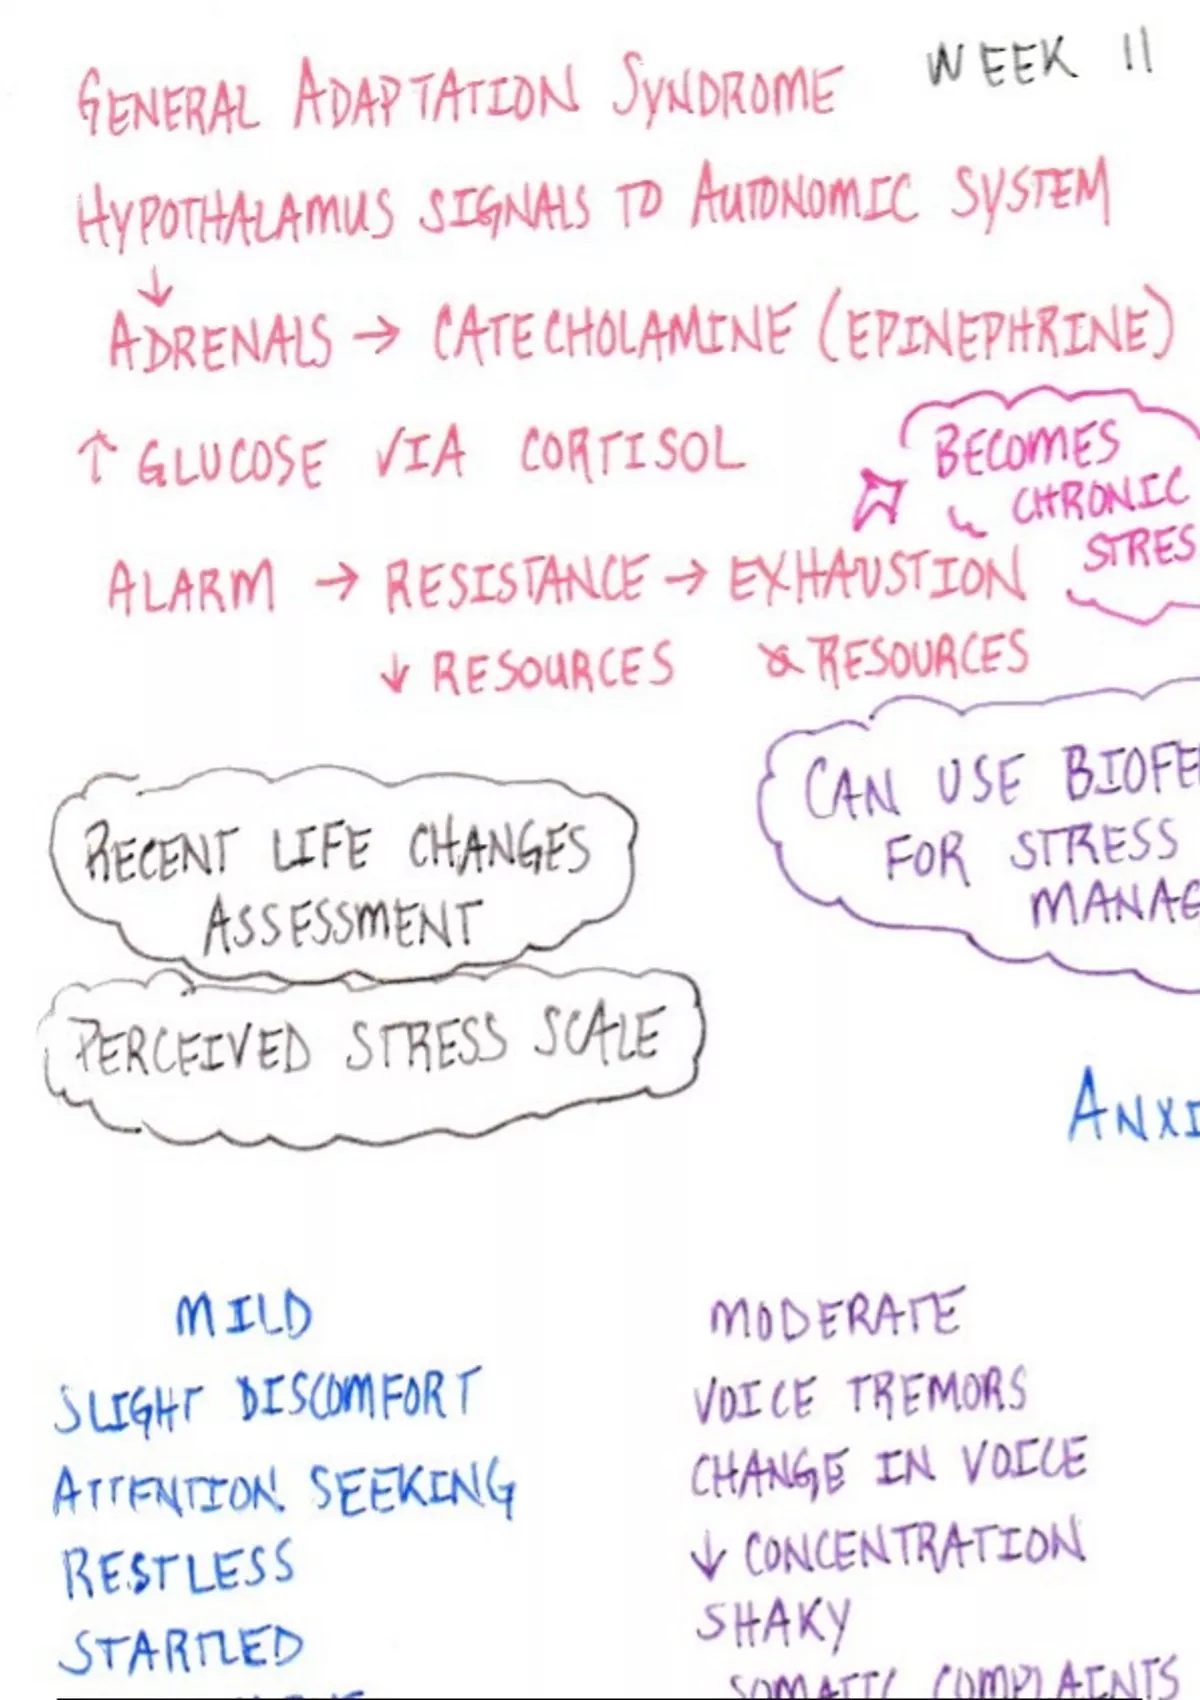 WEEK 11
GENERAL ADAPTATION SYNDROME
HYPOTHALAMUS SIGNALS TO AUTONOMIC SYSTEM
↓
ADRENALS → CATECHOLAMINE (EPINEPHRINE)
↑ GLUCOSE VIA CORTISOL
BECOMES
↳ CHRONIC
STRES
ALARM → RESISTANCE → EXHAUSTION
↓ RESOURCES
RESOURCES
CAN USE BIOFE
FOR STRESS
MANAG
RECENT LIFE CHANGES
ASSESSMENT
PERCEIVED STRESS SCALE
ANXI
MILD
SLIGHT DISCOMFORT
ATTENTION SEEKING
RESTLESS
STARTLED
MODERATE
VOICE TREMORS
CHANGE IN VOICE
↓ CONCENTRATION
SHAKY
SOMATIC COMPLAINTS